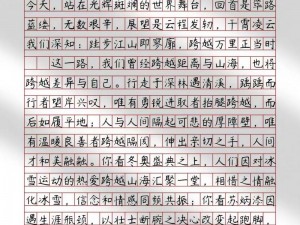 今天，站在光辉斑斓的世界舞台，回首是筚路
蓝缕，无数艰辛，展望是云程发轫，干霄凌云
我们深知：跬步江山即寥廓，跨越万里正当时
这一路，我们曾经跨越距离与山海，也将
跨越差异与自己。行走于深林遇清溪，踽踽而
行者望岸兴叹，唯有勇锐进取者抬腿跨越，而
后如履平地；人与人间隔起可悲的厚障壁，唯
有温暖良善者跨越隔阂，伸出亲切之手，人间
才和美融融。你看冬奥盛典之上，人们因对冰
雪运动的热爱跨越山海汇聚一堂，相惜之情融
化冰雪，信念和情感同频共振；你看苏炳添因
遇生涯瓶颈，以壮士断腕之决心改变起跑脚，